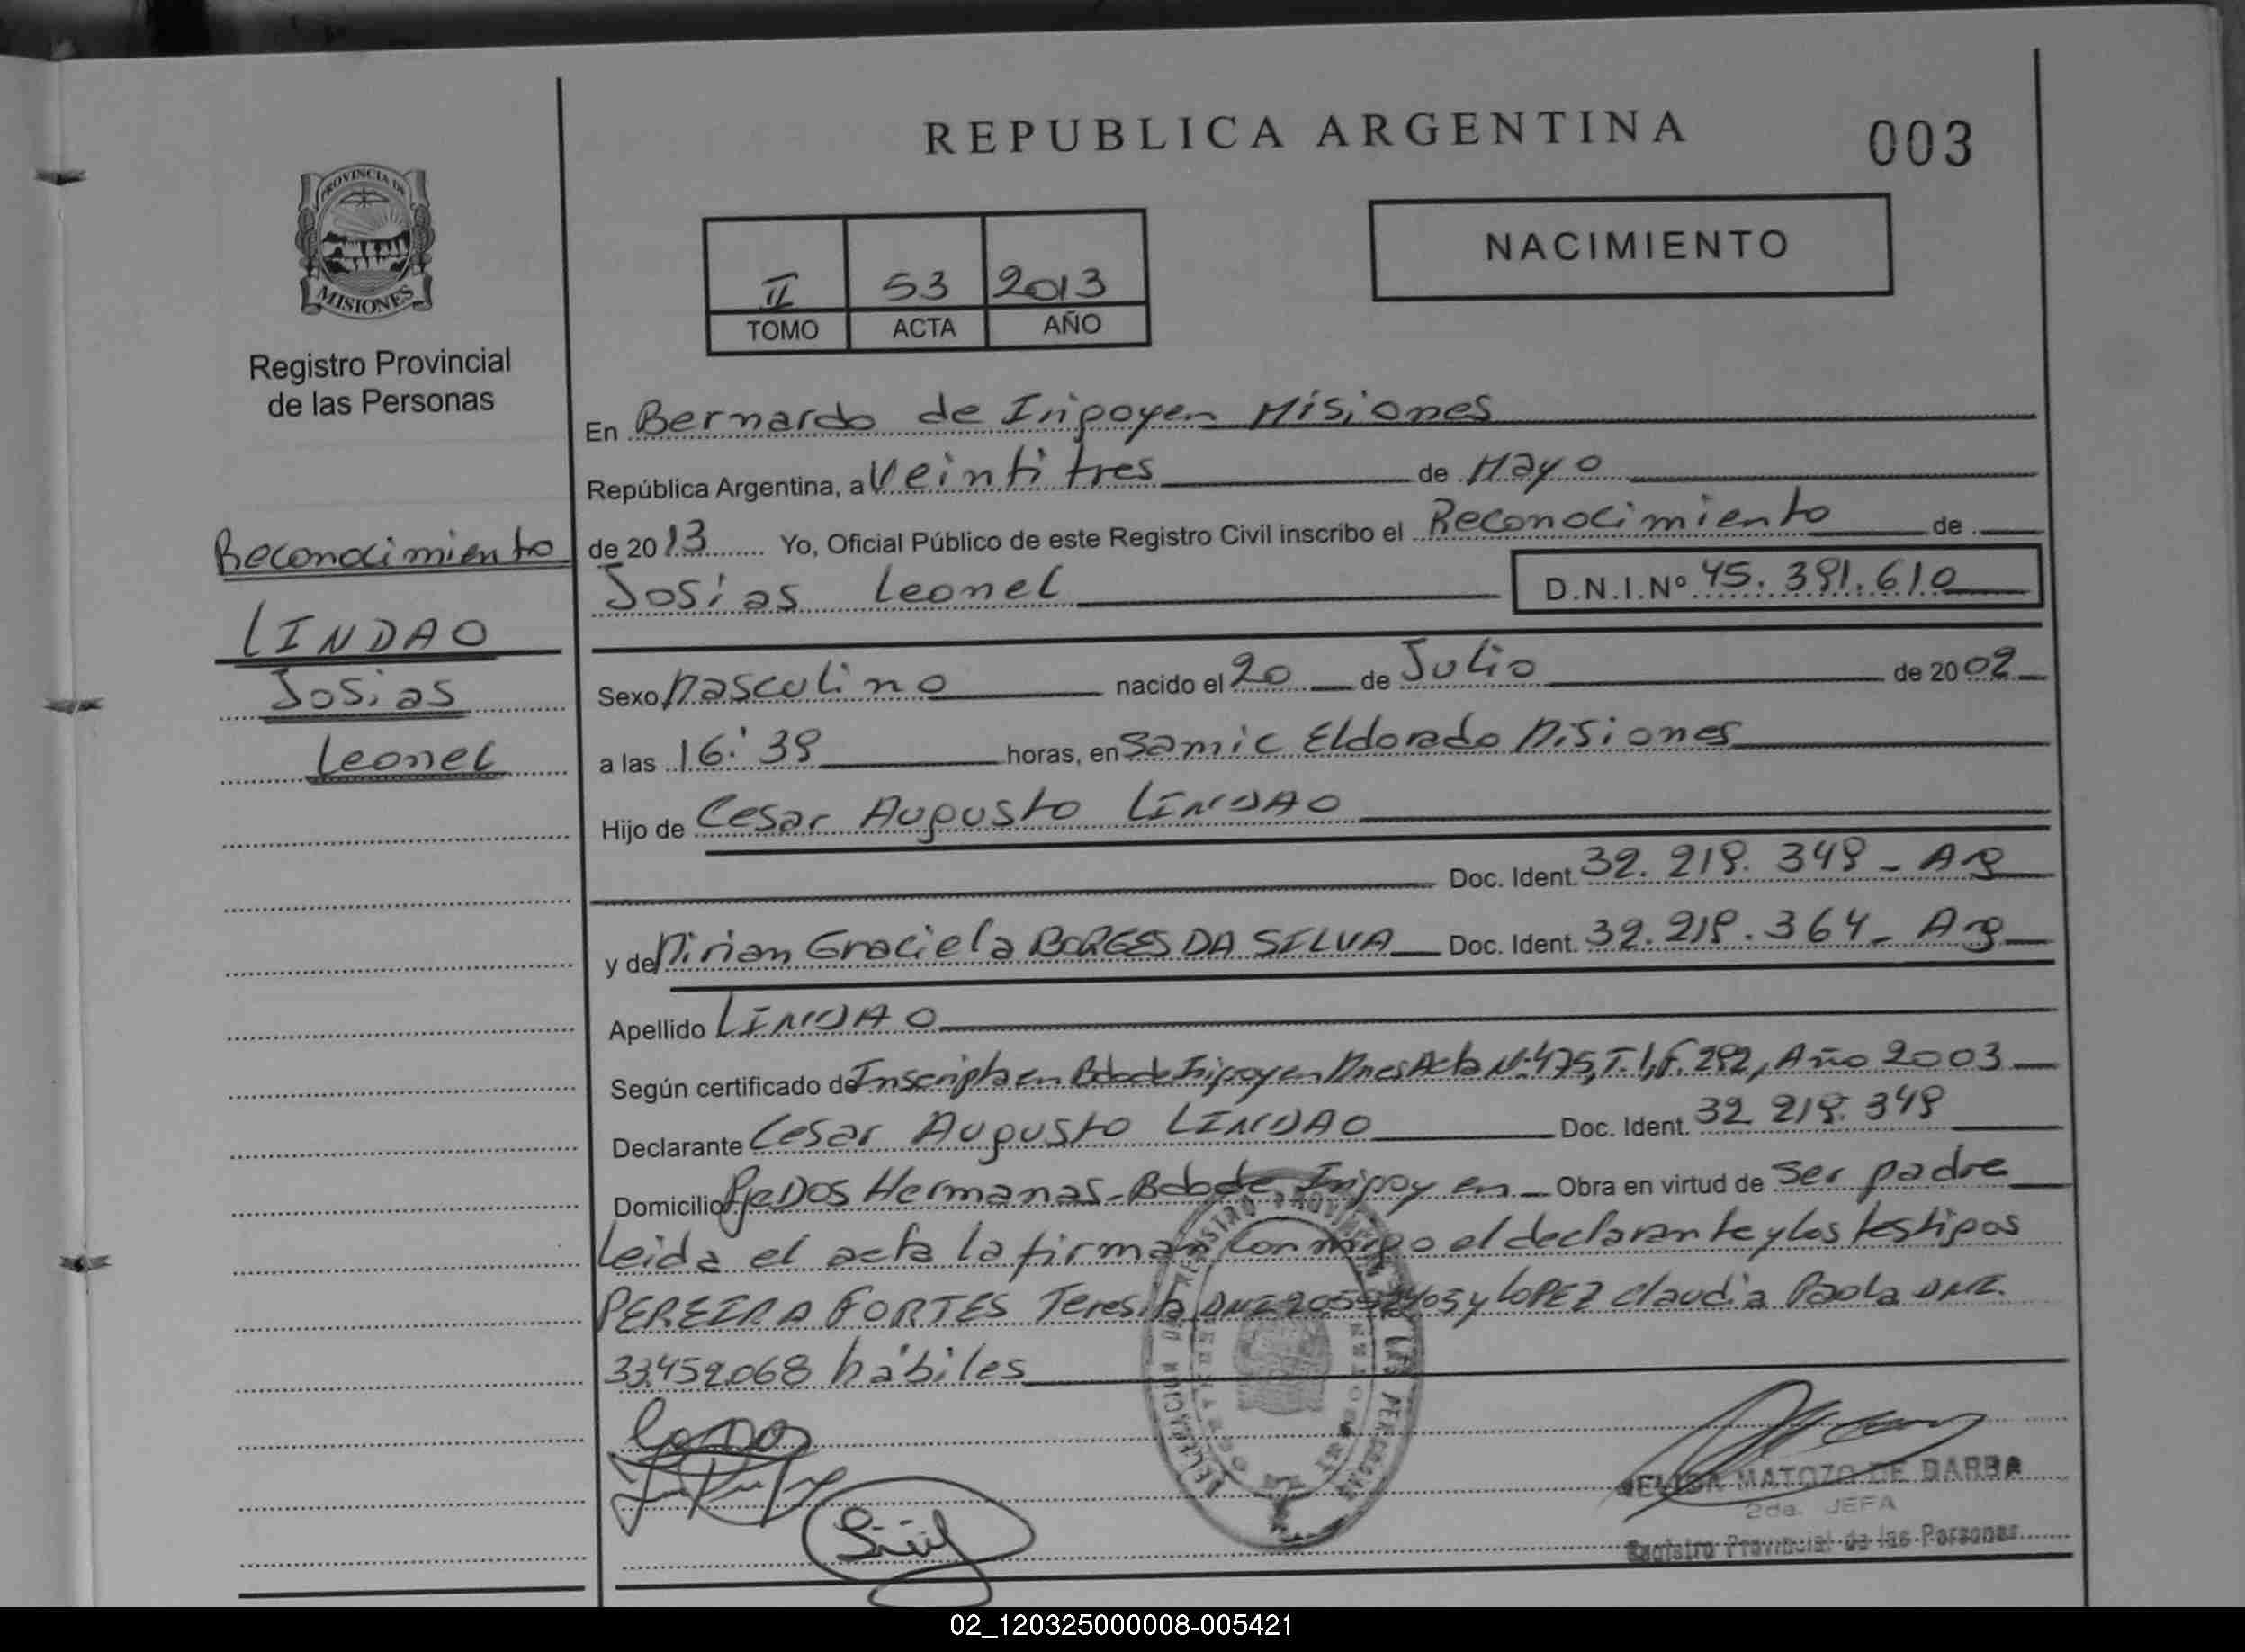 REPUBLICA ARGENTINA
003
PROVINCIA DE
MISIONES
Registro Provincial
de las Personas
NACIMIENTO
II 53 2013
TOMO ACTA AÑO
En Bernardo de Iripoyen Misiones
República Argentina, a Veintitres de Mayo
de 2013 Yo, Oficial Público de este Registro Civil inscribo el Reconocimiento de
Josias Leonel D.N.I.Nº 45.391.610
Reconocimiento
LINDAO
Josias
Leonel
Sexo Masculino nacido el 20 de Julio de 2002
a las 16:39 horas, en Samic Eldorado Misiones
Hijo de Cesar Augusto LINDAO
Doc. Ident. 32.219.349 - Ar
y de Mirian Graciela BORGES DA SILVA Doc. Ident. 32.219.364 - Arg
Apellido LINDAO
Según certificado de Inscripta en Bdo de Iripoyen Mnes Acta Nº 475, T. I, F. 292, Año 2003
Declarante Cesar Augusto LINDAO Doc. Ident. 32 219.349
Domicilio Pje Dos Hermanas - Bdo de Iripoyen Obra en virtud de Ser padre
Leida el acta la firman conmigo el declarante y los testigos
PEREIRA FORTES Teresita DNI y LOPEZ Claudia Paola DNI.
33.452.068 hábiles
MATOZO DE BARBA
2da. JEFA
Registro Provincial de las Personas
02_120325000008-005421